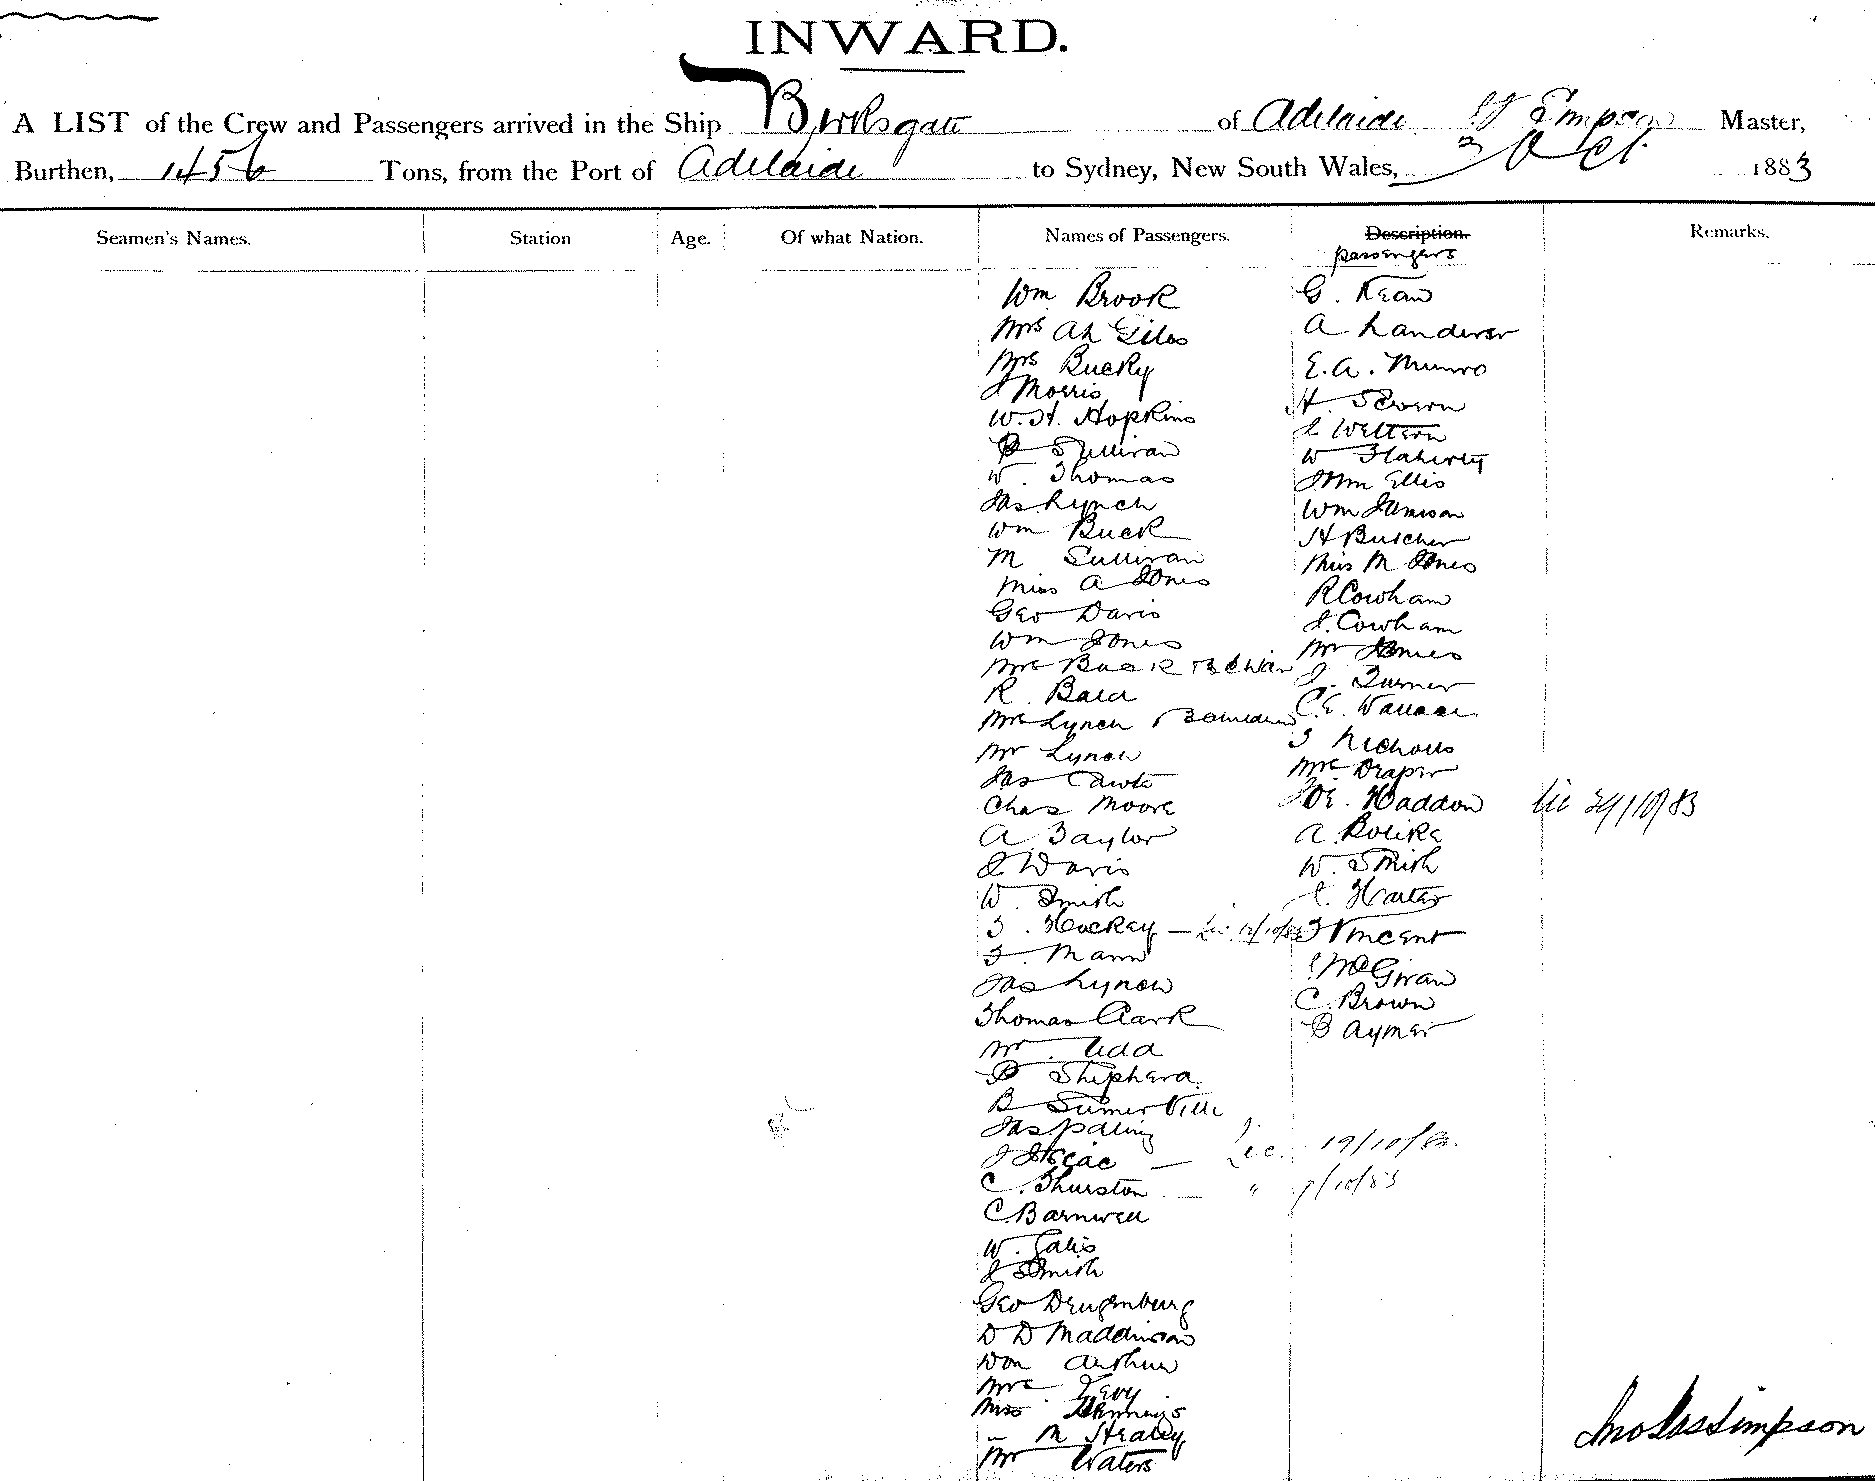 INWARD.
A LIST of the Crew and Passengers arrived in the Ship Birksgate of Adelaide Simpson Master,
Burthen, 1456 Tons, from the Port of Adelaide to Sydney, New South Wales, Oct 1883
Seamen's Names. Station Age. Of what Nation. Names of Passengers. Description. Remarks.
passengers
Wm Brook
Mrs Ah Giles
Mrs Bucky
J Morris
W. H. Hopkins
Sullivan
W. Thomas
Jas Lynch
Wm Buck
M Sullivan
Miss A Jones
Geo Davis
Wm Jones
Mrs Buck
R. Baid
Mrs Lynch
Mr Lynch
Jas Cawte
Chas Moore
A Taylor
J Davis
W. Smith
T. Hockey — Lic 12/10/83
T. Mann
Jas Lynch
Thomas Clark
Mr.
Shepherd
B Sumerville
Jas Paling
J Isaac — Lic. 19/10/83.
C. Thurston — " 9/10/83
C Barnwell
W.
J Smith
Geo
D D Maddinson
Wm Arthur
Mrs Levy
Miss Hennings
" M Healey
Mr Waters
G. Kean
A Landerer
E. A. Munro
H. Severn
Western
W Flaherty
John Ellis
Wm Jamison
H Butcher
Miss M Jones
R Cowham
J. Cowham
Mr James
J. Turner
C. E. Wallace
T Nicholls
Mrs Draper
Joe. Haddon Lic 29/10/83
A. Bourke
W. Smith
Harter
T Vincent
McGiran
C. Brown
B Aymer
Jno Simpson